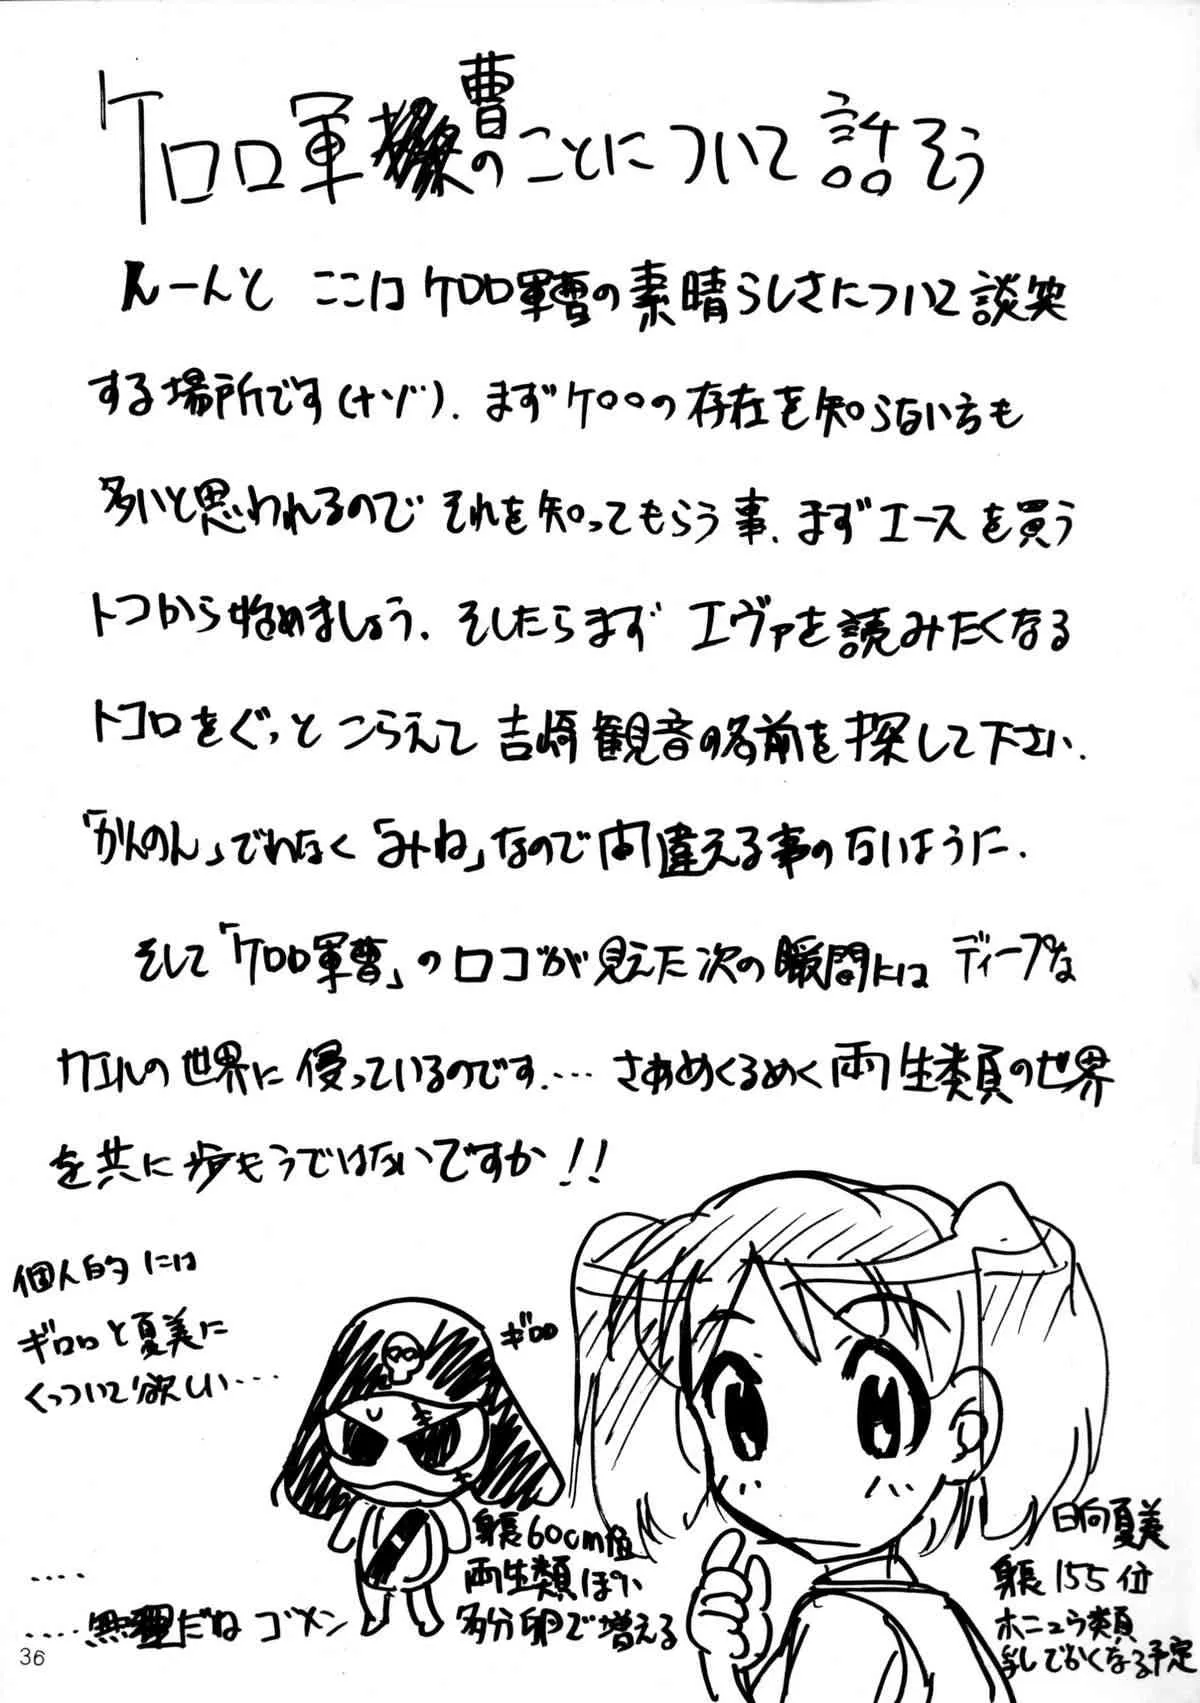 ケロロ軍曹のことについて話そう
んーんと ここはケロロ軍曹の素晴らしさについて談笑
する場所です(ナゾ). まずケロロの存在を知らない方も
多いと思われるので それを知ってもらう事. まずエースを買う
トコから始めましょう. そしたらまず エヴァを読みたくなる
トコロをぐっと こらえて 吉崎観音の名前を探して下さい.
「かんのん」でわなく「みね」なので間違える事のないように.
そして「ケロロ軍曹」のロゴが見えた次の瞬間には ディープな
カエルの世界に侵っているのです.… さあめくるめく両生類の世界
を共に歩もうではないですか!!
個人的には
ギロロと夏美に
くっついて欲しい…
....
.... 無理だね ゴメン
ギロロ
身長60cm位
両生類ぽい
多分卵で増える
日向夏美
身長155位
ホニュウ類
乳しでかくなる予定
36